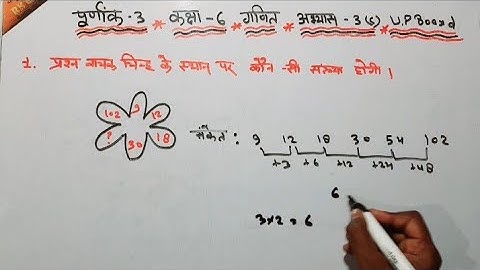 पूर्णांक-3 * कक्षा-6 * गणित * अभ्यास-3(c) * U.P Board
1. प्रश्न वाचक चिन्ह के स्थान पर कौन सी संख्या होगी ।
102 9 12
? 30 18
संकेत : 9 12 18 30 54 102
+3 +6 +12 +24 +48
6
3×2 = 6